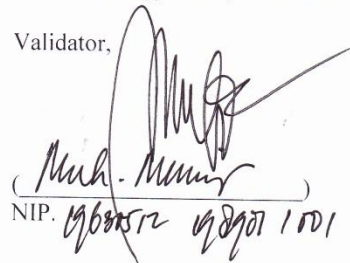 Validator,
(Muh.
NIP. 19630512 198901 1 001